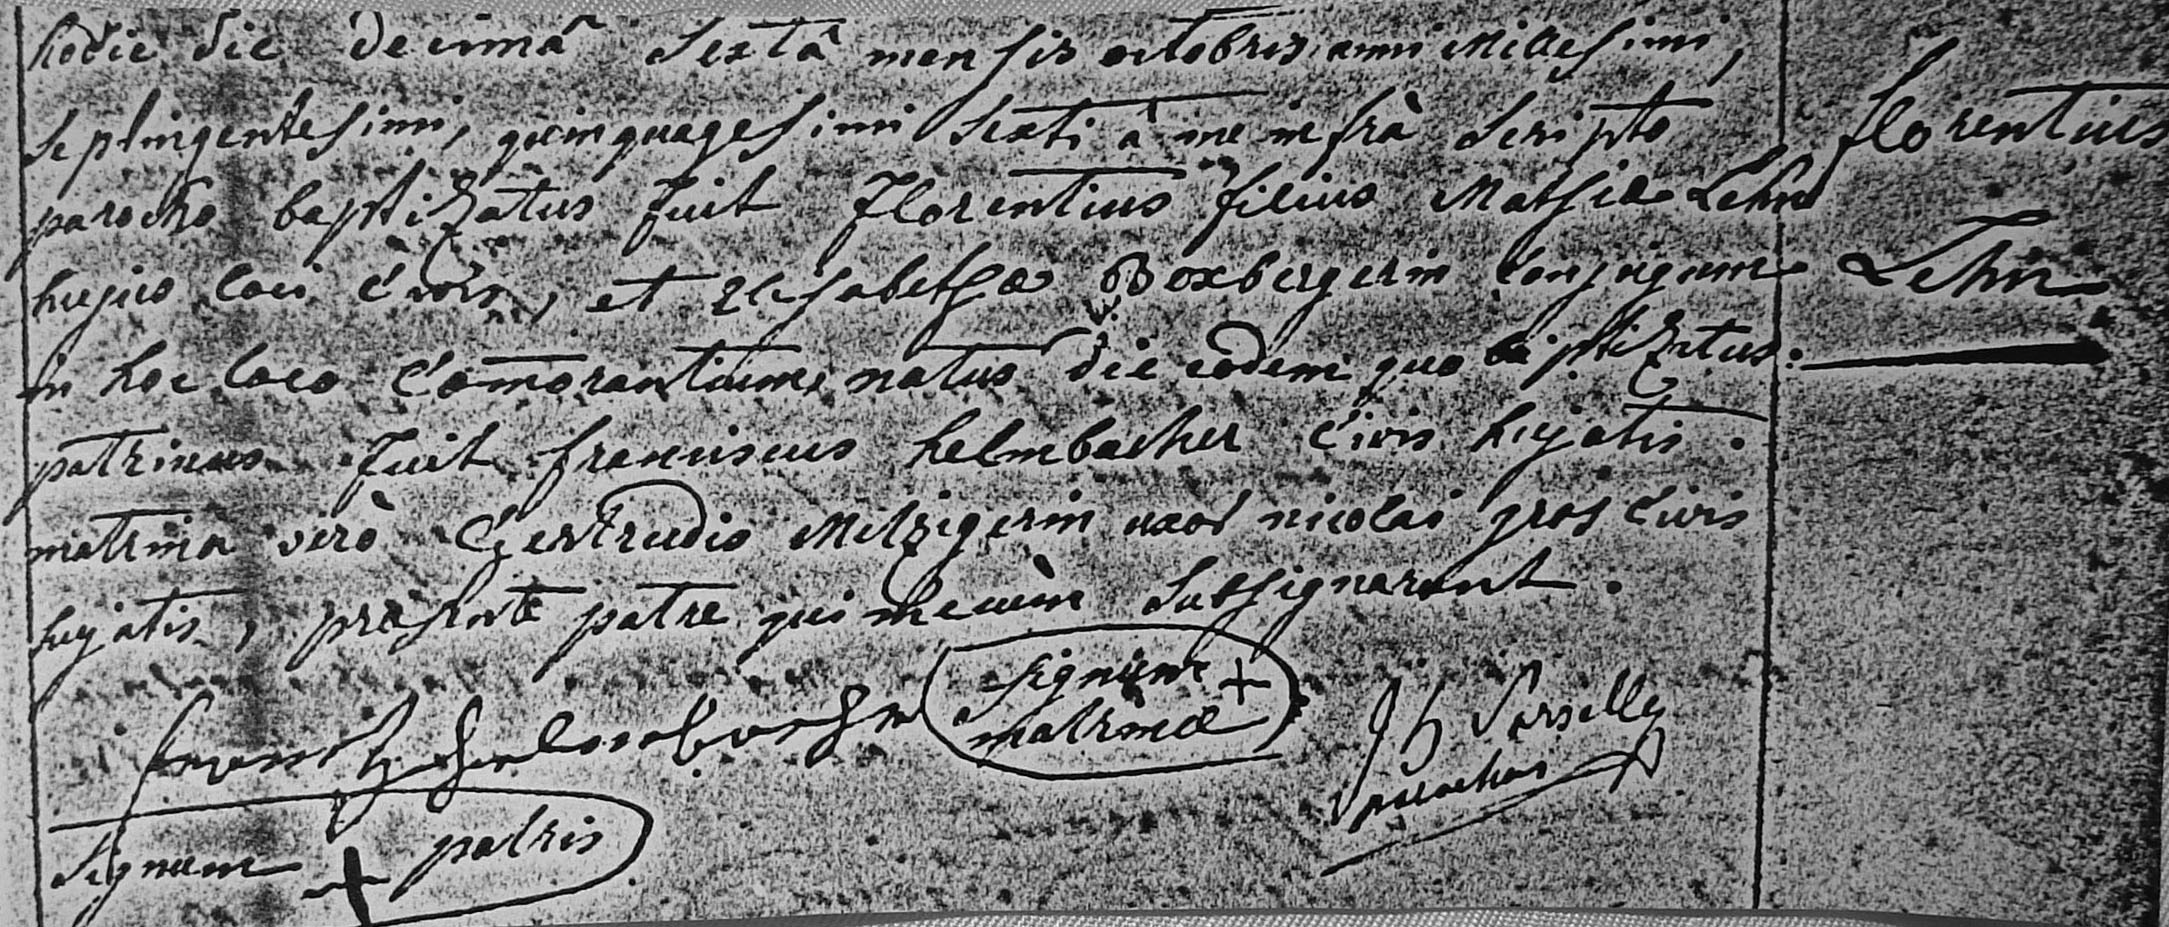 hodie die decimâ Sextâ mensis octobris anni Millesimi,
Septingentesimi, quinquagesimi Sexti â me infrà Scripto
parocho baptizatus fuit Florentius filius Mathiae Lehn
hujus loci Civis, et Elisabethae Boxbergerin Conjugum
in hoc loco Comorantium, natus die eodem quo baptizatus.
patrinus fuit franciscus helmbacher Civis hujatis.
matrina verò Gertrudis Metzigerin uxor nicolai gros Civis
hujatis, praesente patre qui mecùm Subsignarunt.
florentius
Lehn
frantz Helmbacher
Signum +
matrinae
parochus
Signum + patris